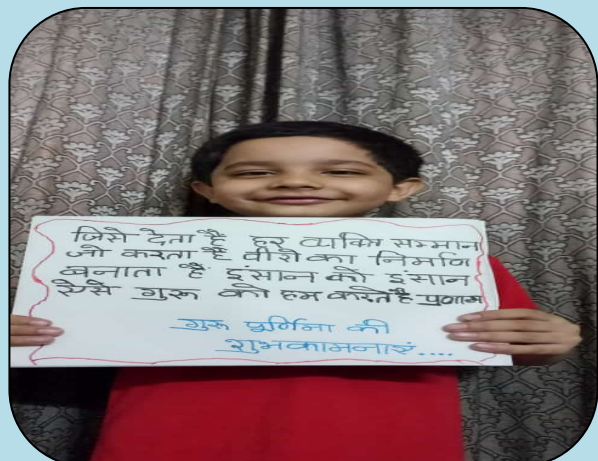 जिसे देता है हर व्यक्ति सम्मान
जो करता है वीरो का निर्माण
बनाता है इंसान को इंसान
ऐसे गुरू को हम करते है प्रणाम
गुरू पूर्णिमा की
शुभकामनाएं....